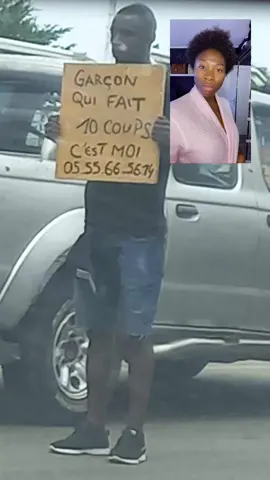 GARÇON
QUI FAIT
10 COUPS
C'EST MOI
05.55.66.56.14